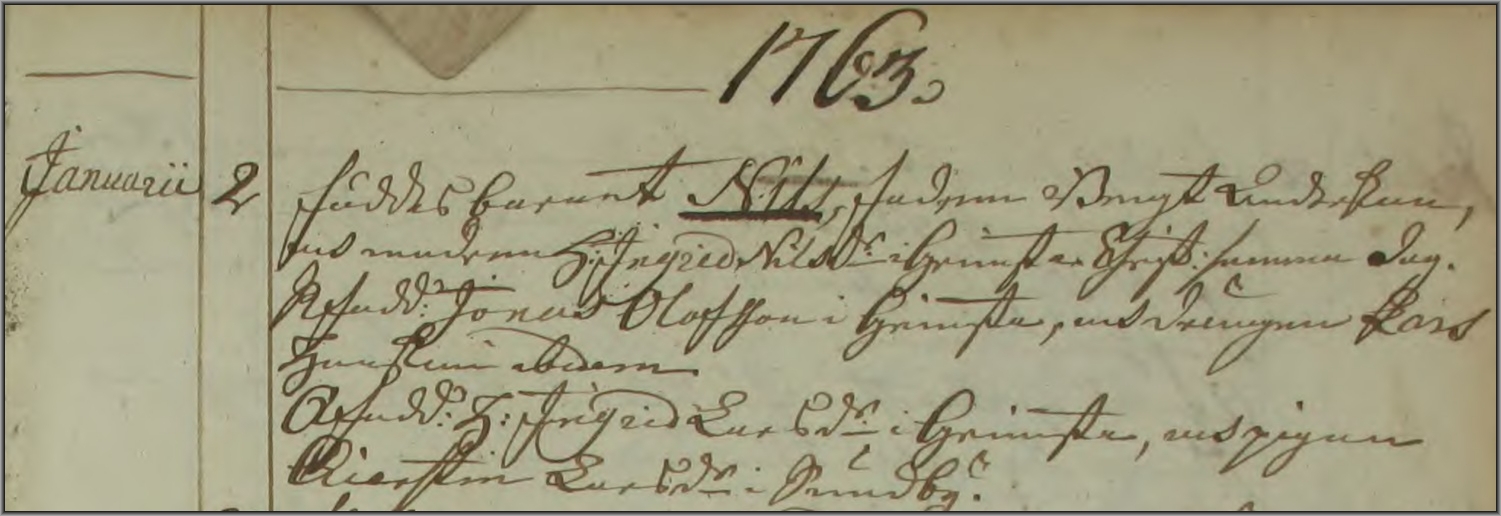 1763.
Januarii 2 föddes barnet Nils, fadren Bengt Andersson,
och modren H: Ingrid Nilsdr i Grimsta Christ: samma dag.
Jonas Olofsson i Grimsta, och drengen Lars
Hansson ibidem
H: Ingrid Larsdr i Grimsta, och pigan
Kierstin Larsdr i Sundby.